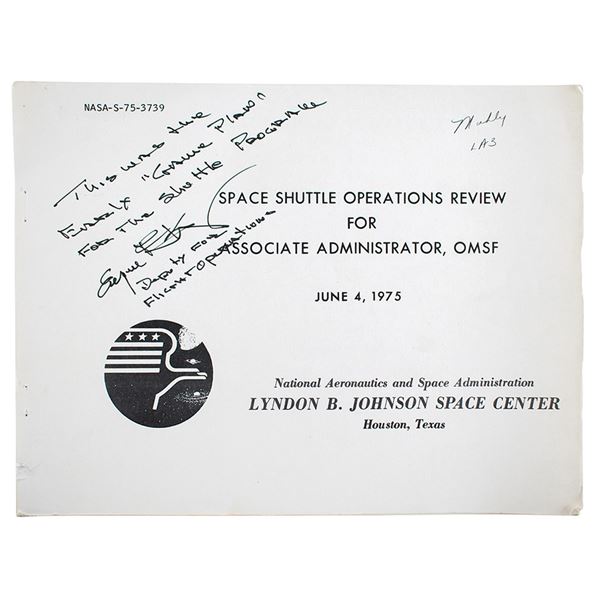 NASA-S-75-3739
This was the
"Game Plan"
for the Shuttle Programme
LA3
SPACE SHUTTLE OPERATIONS REVIEW
FOR
ASSOCIATE ADMINISTRATOR, OMSF
Deputy for
Flight Operations
JUNE 4, 1975
National Aeronautics and Space Administration
LYNDON B. JOHNSON SPACE CENTER
Houston, Texas